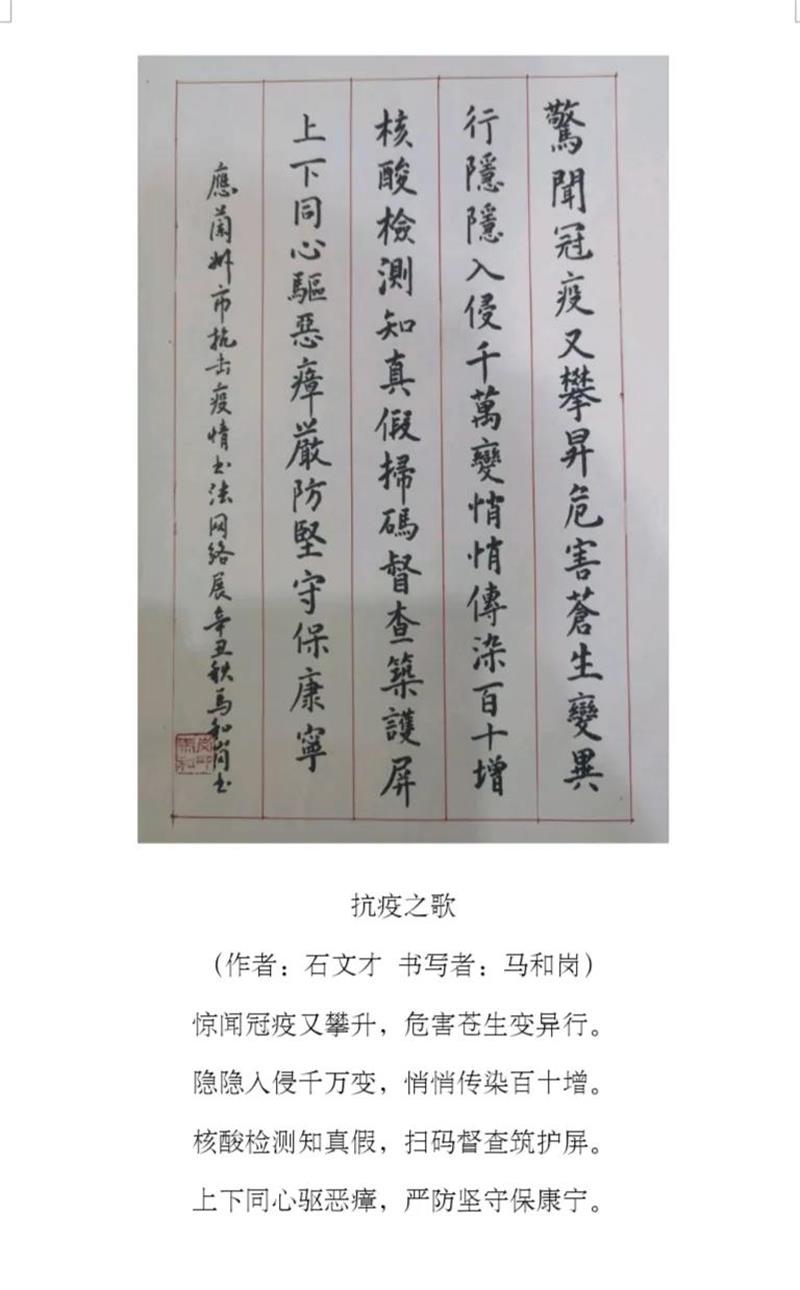 驚聞冠疫又攀昇危害蒼生變異
行隱隱入侵千萬變悄悄傳染百十增
核酸檢測知真假掃碼督查築護屏
上下同心驅惡瘴嚴防堅守保康寧
應蘭州市抗击疫情书法网络展辛丑秋馬和崗书
抗疫之歌
（作者：石文才 书写者：马和岗）
惊闻冠疫又攀升，危害苍生变异行。
隐隐入侵千万变，悄悄传染百十增。
核酸检测知真假，扫码督查筑护屏。
上下同心驱恶瘴，严防坚守保康宁。